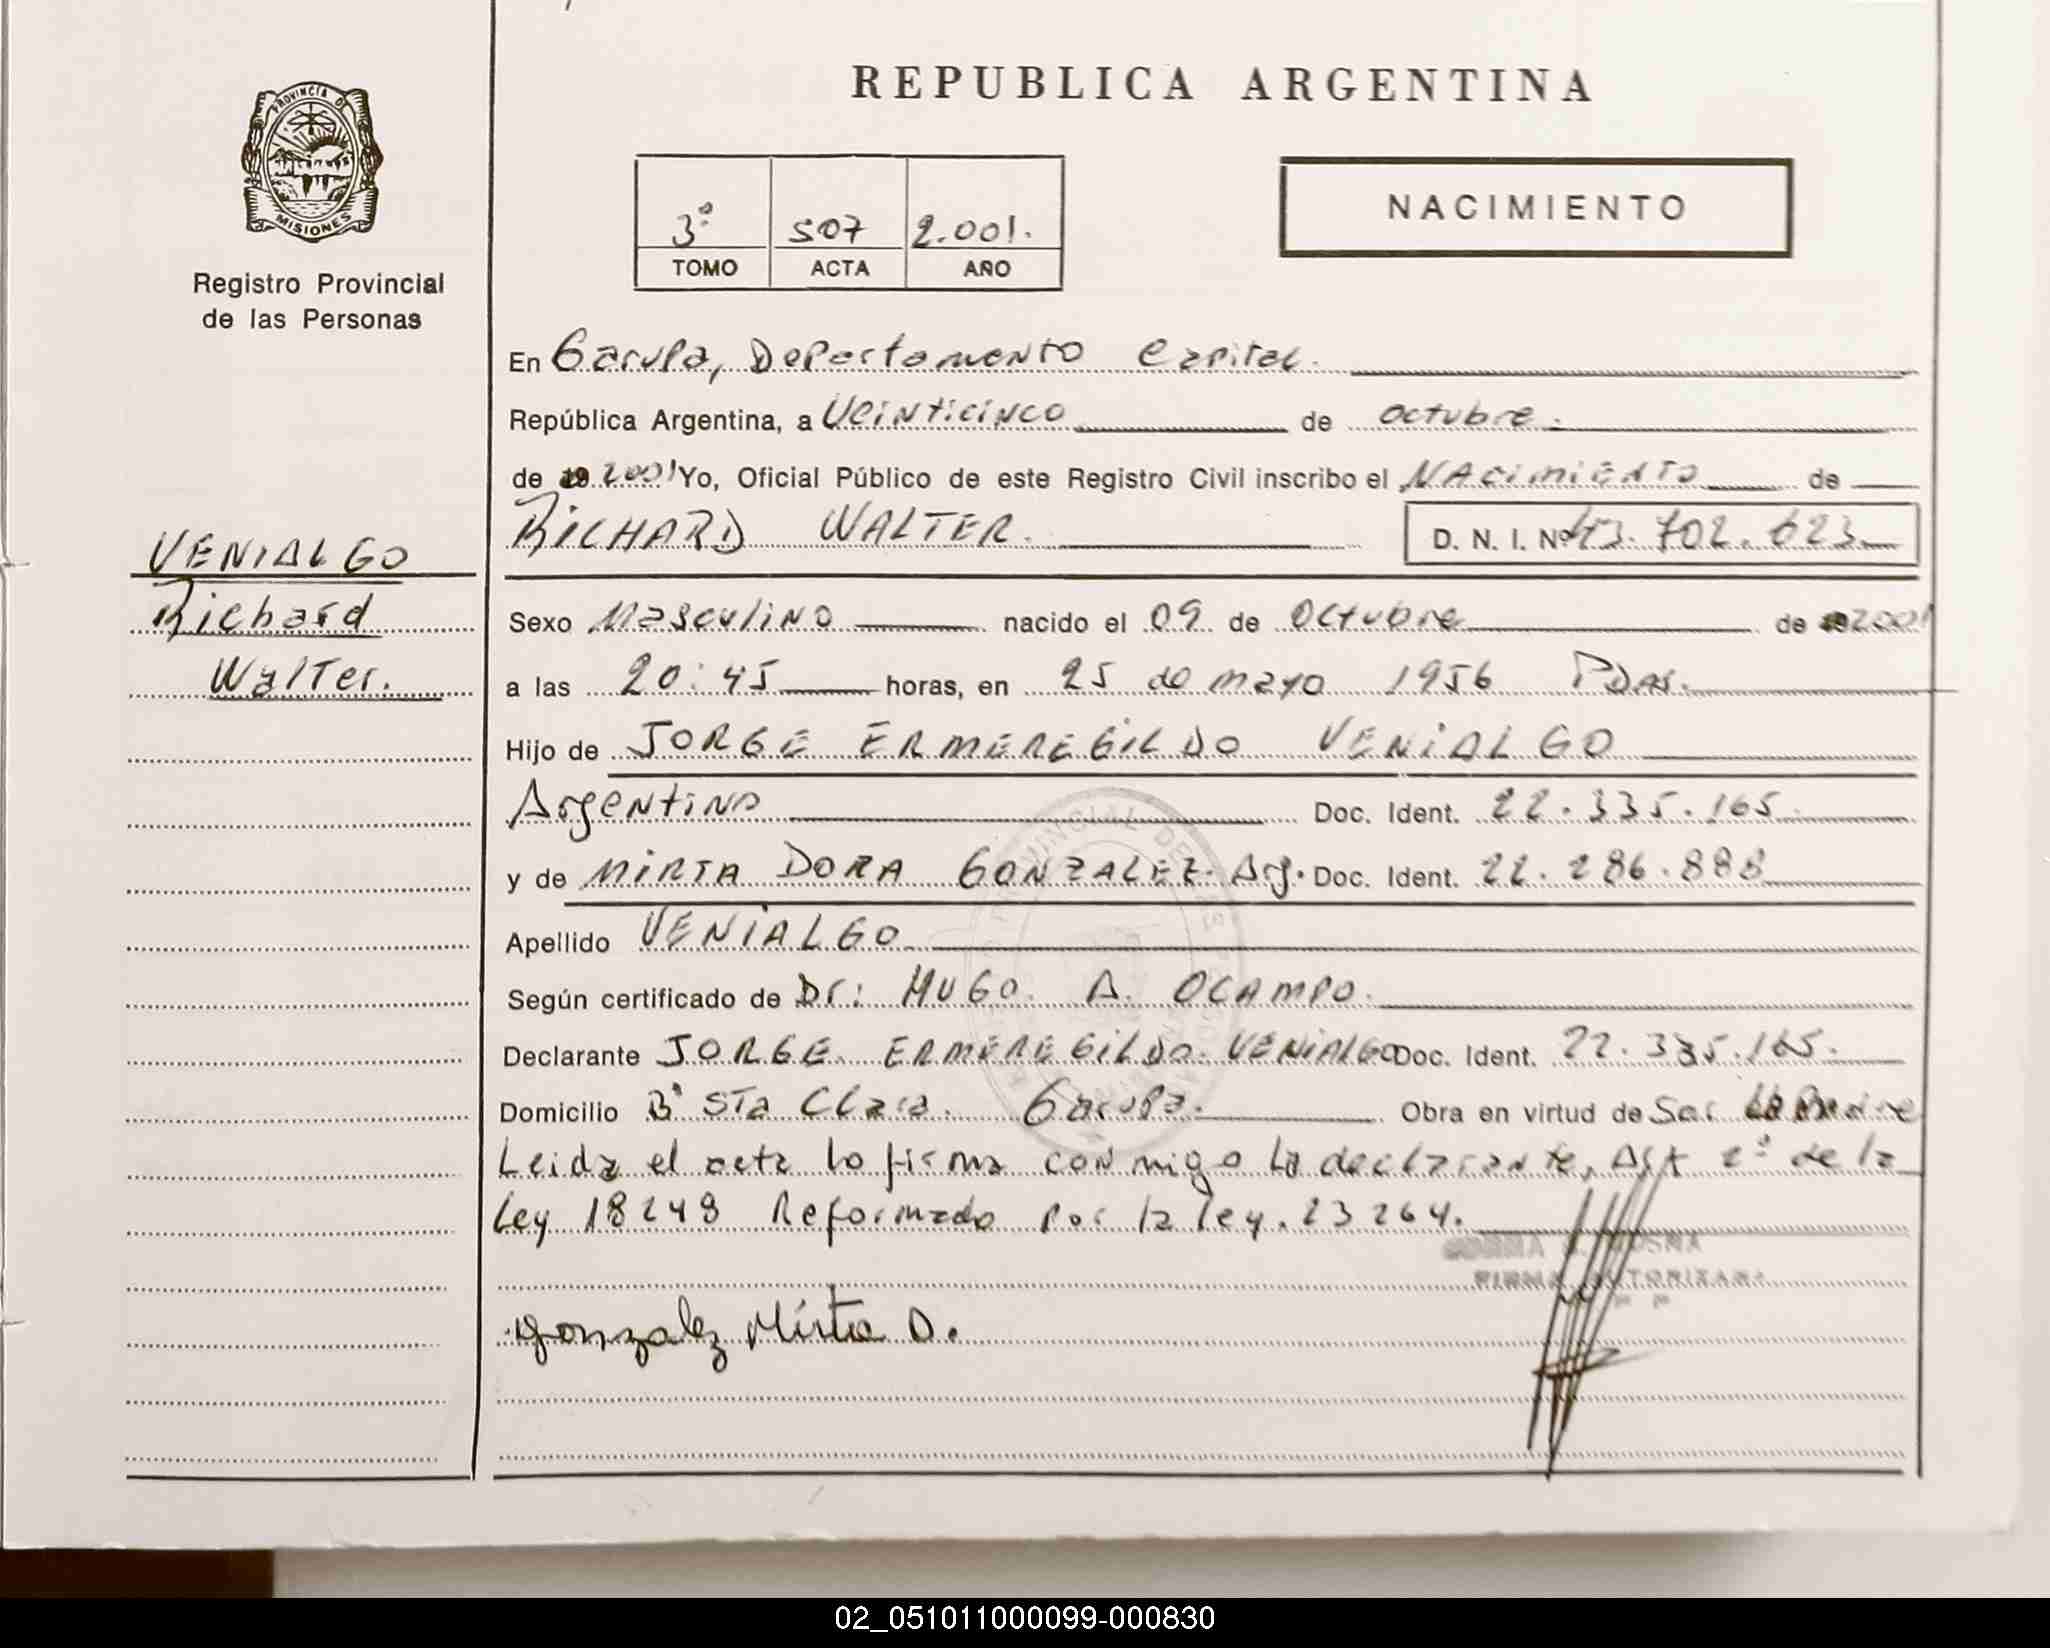 PROVINCIA DE
MISIONES
Registro Provincial
de las Personas
VENIALGO
Richard
Walter.
REPUBLICA ARGENTINA
3º 507 2.001.
TOMO ACTA AÑO
NACIMIENTO
En Garupa, Departamento Capital.
República Argentina, a Veinticinco de octubre.
de 19 2001 Yo, Oficial Público de este Registro Civil inscribo el Nacimiento de
RICHARD WALTER. D. N. I. Nº 43.702.623
Sexo Masculino nacido el 09 de Octubre de 2001
a las 20:45 horas, en 25 de mayo 1956 Pdas.
Hijo de JORGE ERMEREGILDO VENIALGO
Argentino Doc. Ident. 22.335.165.
y de MIRTA DORA GONZALEZ. Arg. Doc. Ident. 22.286.888
Apellido VENIALGO
Según certificado de Dr: HUGO A. OCAMPO.
Declarante JORGE ERMEREGILDO VENIALGO Doc. Ident. 22.335.165.
Domicilio Bº Sta Clara. Garupa. Obra en virtud de Ser La Madre
Leida el acta lo firma conmigo La declarante, Art 2º de la
Ley 18248 Reformado por la ley. 23264.
FIRMA AUTORIZADA
Gonzalez Mirta D.
02_051011000099-000830